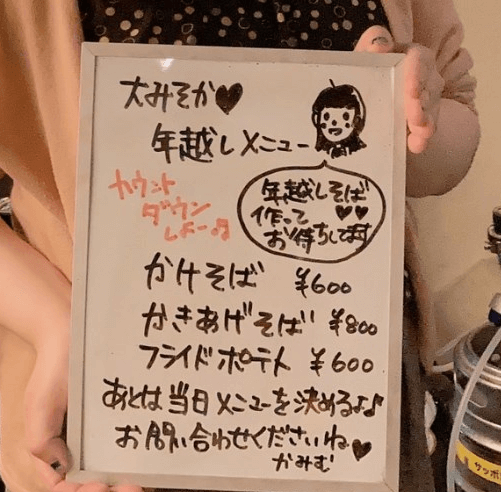 大みそか♥
年越しメニュー
カウント
ダウン
しよー♫
年越しそば
作って♥♥
お待ちしてます
かけそば ¥600
かきあげそば ¥800
フライドポテト ¥600
あとは当日メニューを決めるよ♪
お問い合わせくださいね♥
かみむ
サッポ